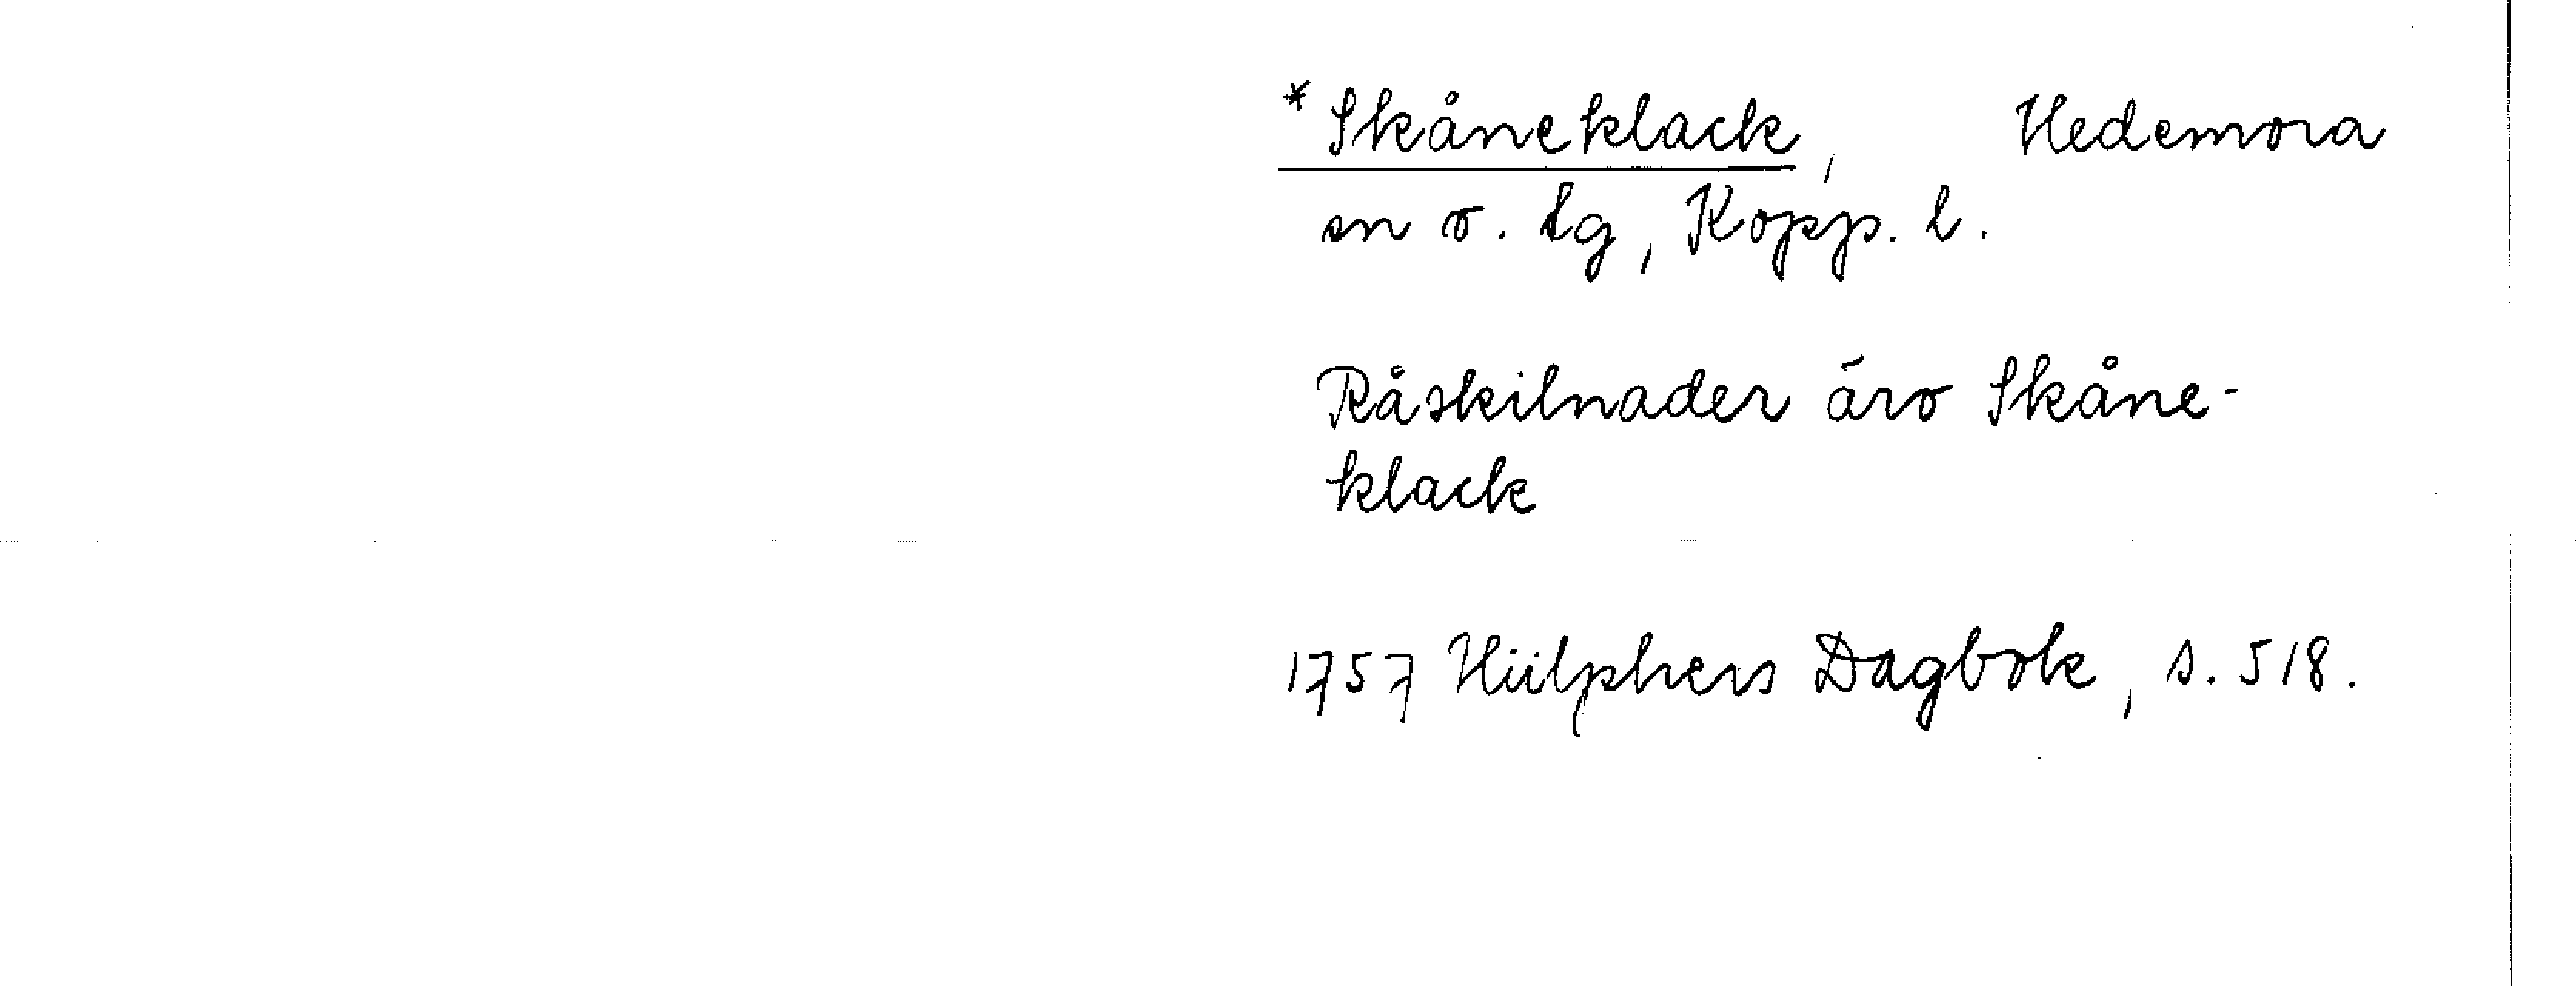 *Skåneklack, Hedemora
sn o. tg, Kopp. l.
Råskilnader äro Skåne-
klack
1757 Hülphers Dagbok, s. 518.